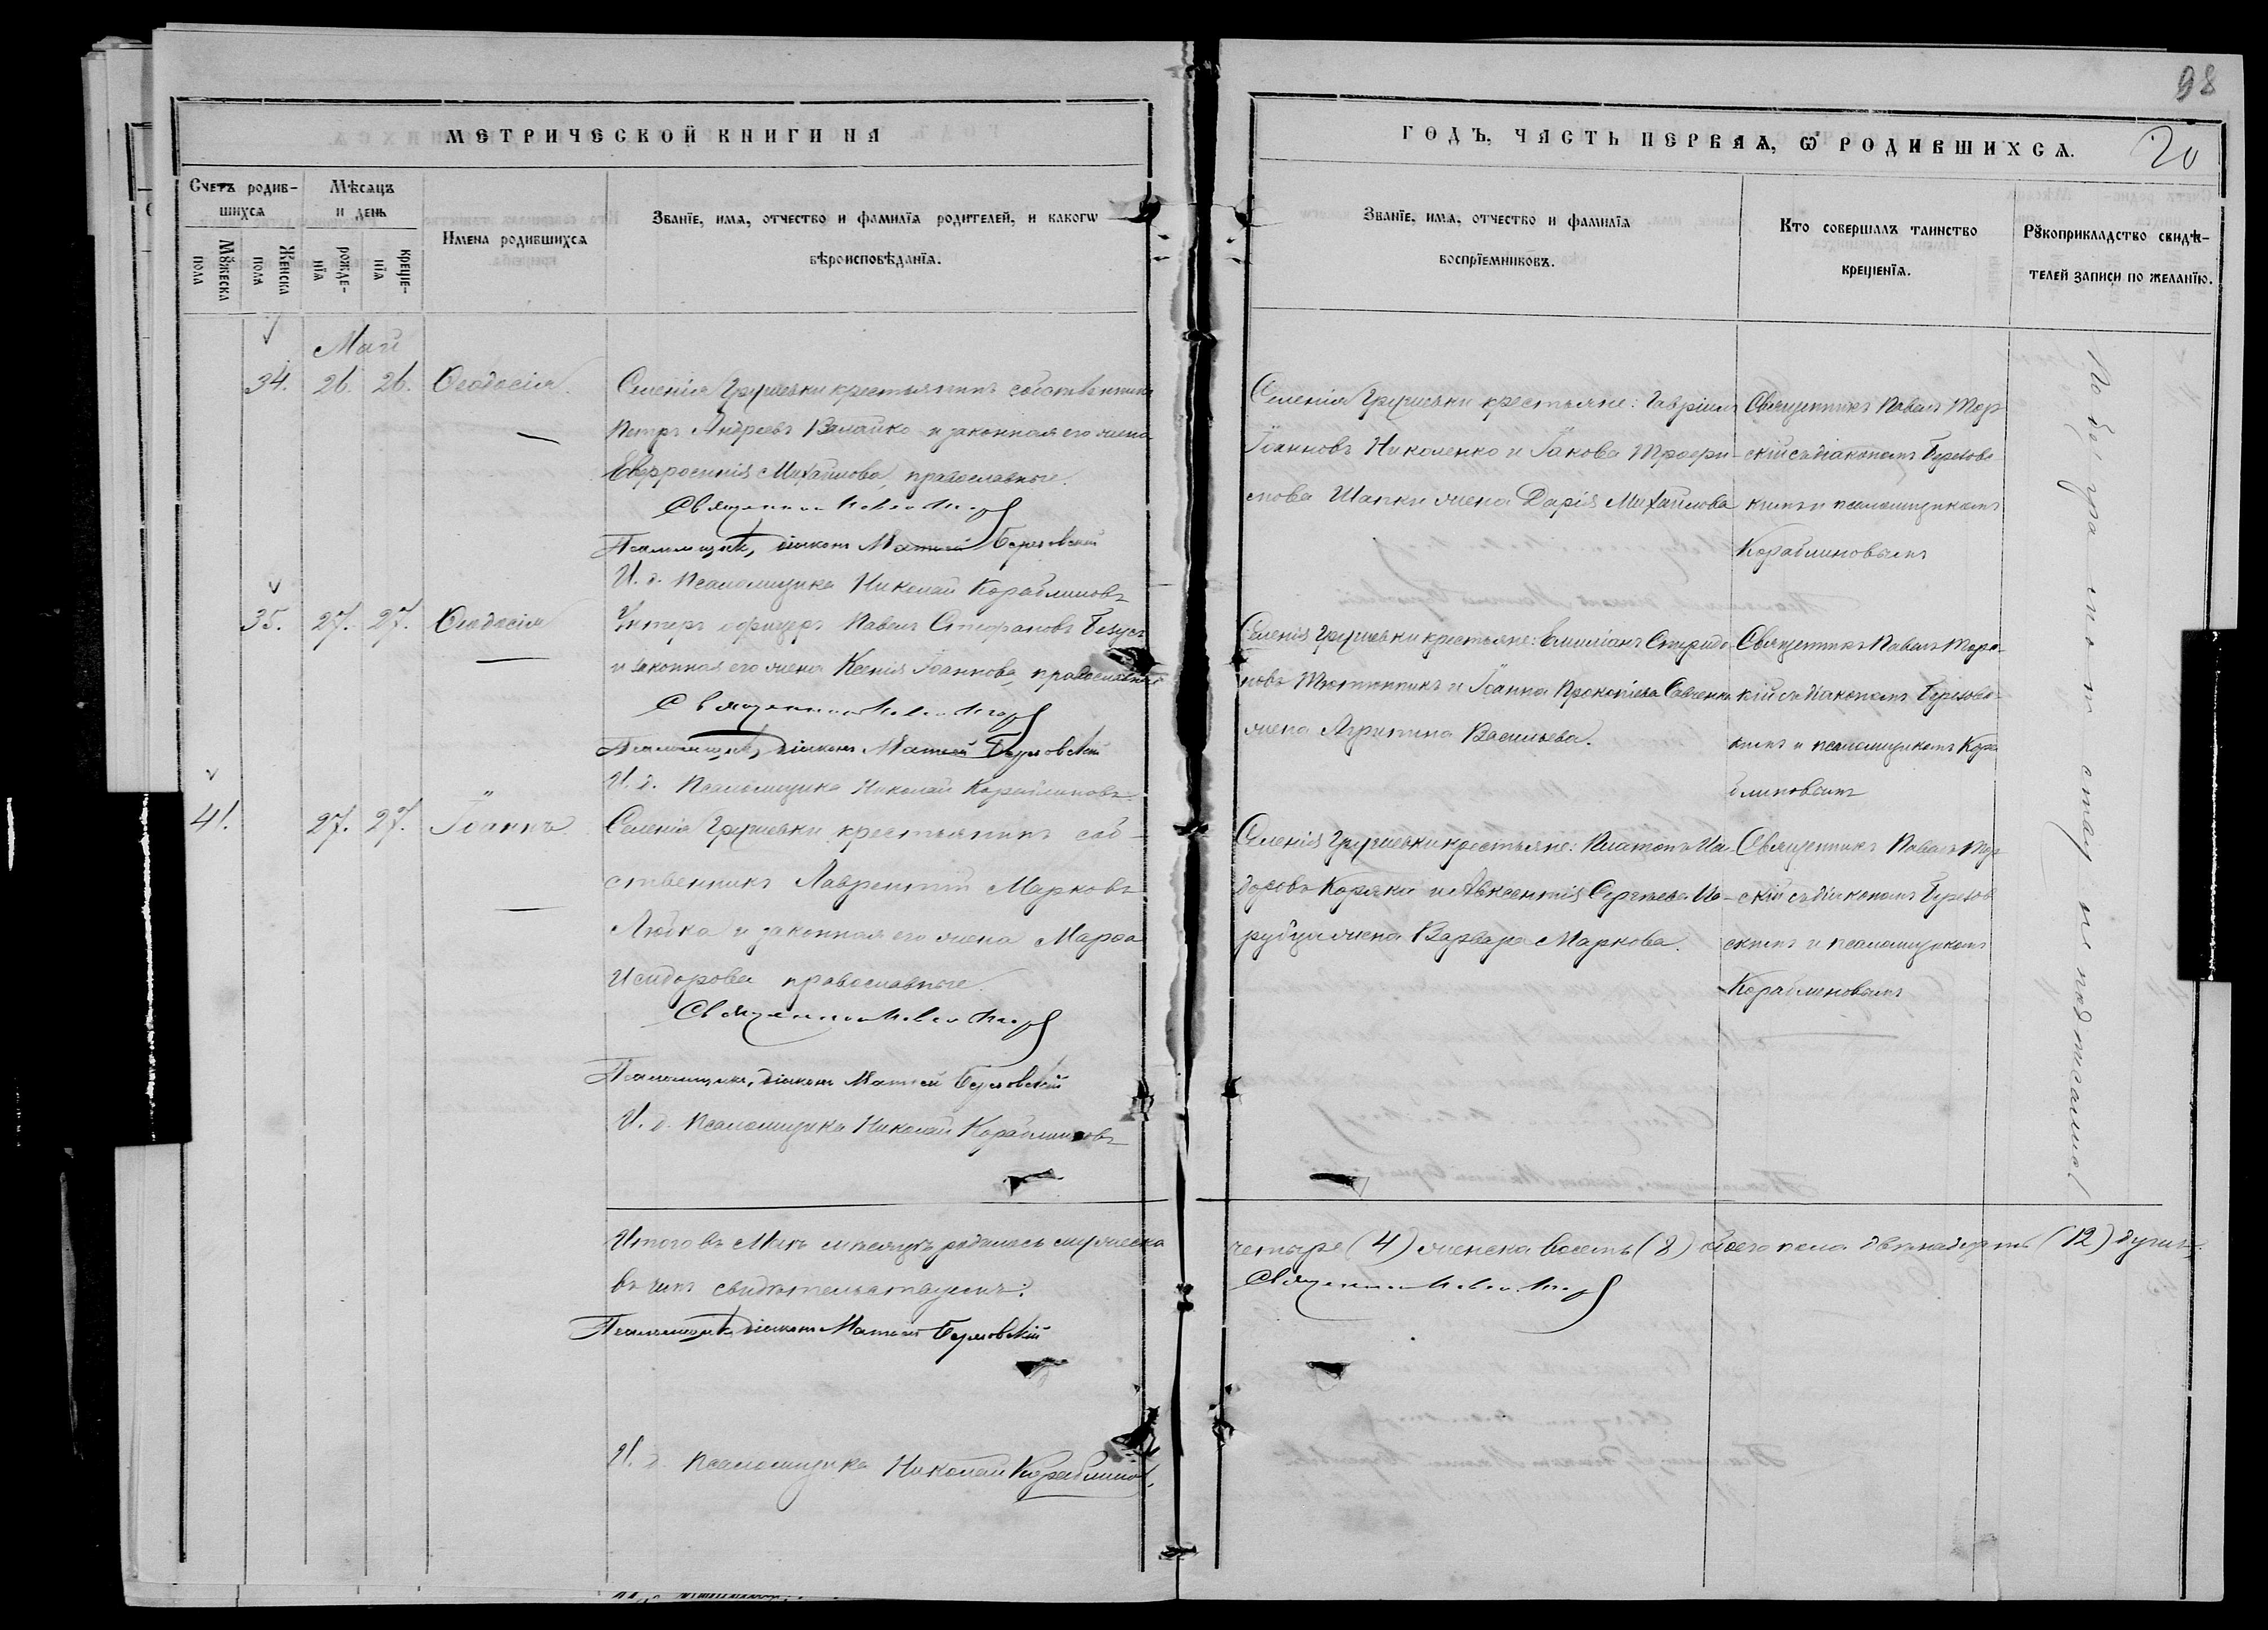 98
МЕТРИЧЕСКОЙ КНИГИ НА
ГОДЪ, ЧАСТЬ ПЕРВАЯ, Ѡ РОДИВШИХСѦ.
20
Счетъ родив-
шихсѧ
Мѣсѧцъ
и день
Мꙋжеска
пола
Женска
пола
рожде-
нїѧ
креще-
нїѧ
Имена родившихсѧ
Званїе, имѧ, отчество и фамилїѧ родителей, и какогѡ
вѣроисповѣданїѧ.
Званїе, имѧ, отчество и фамилїѧ
воспрїемниковъ.
Кто совершалъ таинство
крещенїѧ.
Рꙋкоприкладство свидѣ-
телей записи по желанїю.
Май
34. 26. 26. Ѳеодосія
Селенія Грушевки крестьянинъ собственникъ
Петръ Андреевъ Валайко и законная его жена
Евфросинія Михайлова, православные.
Священникъ Павелъ
Псаломщикъ, діаконъ Матѳей Березовскій
И. д. псаломщика Николай Кораблиновъ
Селенія Грушевки крестьяне: Гавріилъ
Іоанновъ Николенко и Іакова Трофи-
мова Шапки жена Дарія Михайлова
Священникъ Павелъ Тор
скій съ діакономъ Березовс
кимъ и псаломщикомъ
Кораблиновымъ
35. 27. 27. Ѳеодосія
Унтеръ офицеръ Павелъ Стефановъ Безусъ
и законная его жена Ксенія Іоаннова, православные
Священникъ Павелъ
Псаломщикъ, діаконъ Матѳей Березовскій
И. д. Псаломщика Николай Кораблиновъ
Селенія Грушевки крестьяне: Емиліанъ Спиридо-
новъ Тютюнникъ и Іоанна Прокопіева Савченка
жена Агрипина Васильева.
Священникъ Павелъ Тор-
скій съ діакономъ Березовс-
кимъ и псаломщикомъ Кора
блиновымъ
41. 27. 27. Іоаннъ
Селенія Грушевки крестьянинъ соб-
ственникъ Лаврентій Марковъ
Любка и законная его жена Марѳа
Исидорова православные.
Священникъ Павелъ
Псаломщикъ, діаконъ Матѳей Березовскій
И. д. Псаломщика Николай Кораблиновъ
Селенія Грушевки крестьяне: Платонъ Иси-
доровъ Коряки и Авксентія Сергѣева
жена Варвара Маркова.
Священникъ Павелъ Тор
скій съ діакономъ Березов
скимъ и псаломщикомъ
Кораблиновымъ
Итого въ Маѣ мѣсяцѣ родилось мужеска
четыре (4) женска восемь (8) обоего пола двѣнадцать (12) душъ.
въ чемъ свидѣтельствуемъ:
Священникъ Павелъ
Псаломщикъ діаконъ Матѳей Березовскій
И. д. псаломщика Николай Кораблиновъ